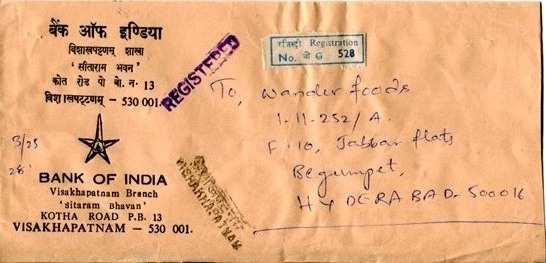 बैंक ऑफ इण्डिया
विशाखपट्टणम् शाखा
'सीताराम भवन'
कोत रोड पो बो. न. 13
विशाखपट्टणम् - 530 001.
BANK OF INDIA
Visakhapatnam Branch
'Sitaram Bhavan'
KOTHA ROAD P.B. 13
VISAKHAPATNAM – 530 001.
REGISTERED
रजिस्ट्री Registration
No. G 528
To,
Wander foods
1-11-252/A.
F-10, Jabbar flats
Begumpet,
HYDERABAD-500016
VISAKHAPATNAM